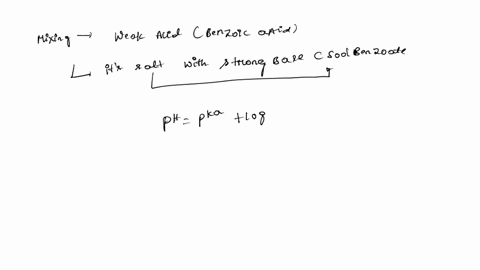 Mixing → Weak Acid (Benzoic acid)
it's salt with strong Base (Sod Benzoate
pH = pKa + log